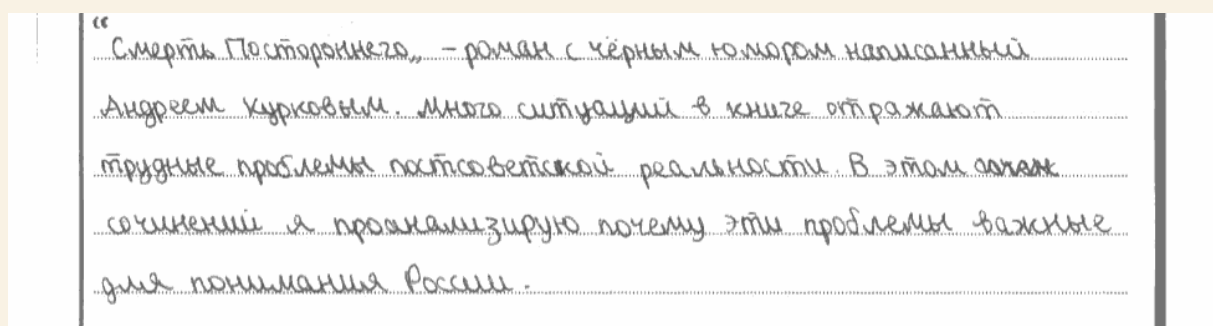 “Смерть Постороннего„ – роман с чёрным юмором написанный
Андреем Курковым. Много ситуаций в книге отражают
трудные проблемы постсоветской реальности. В этом
сочинений я проанализирую почему эти проблемы важные
для понимания России.